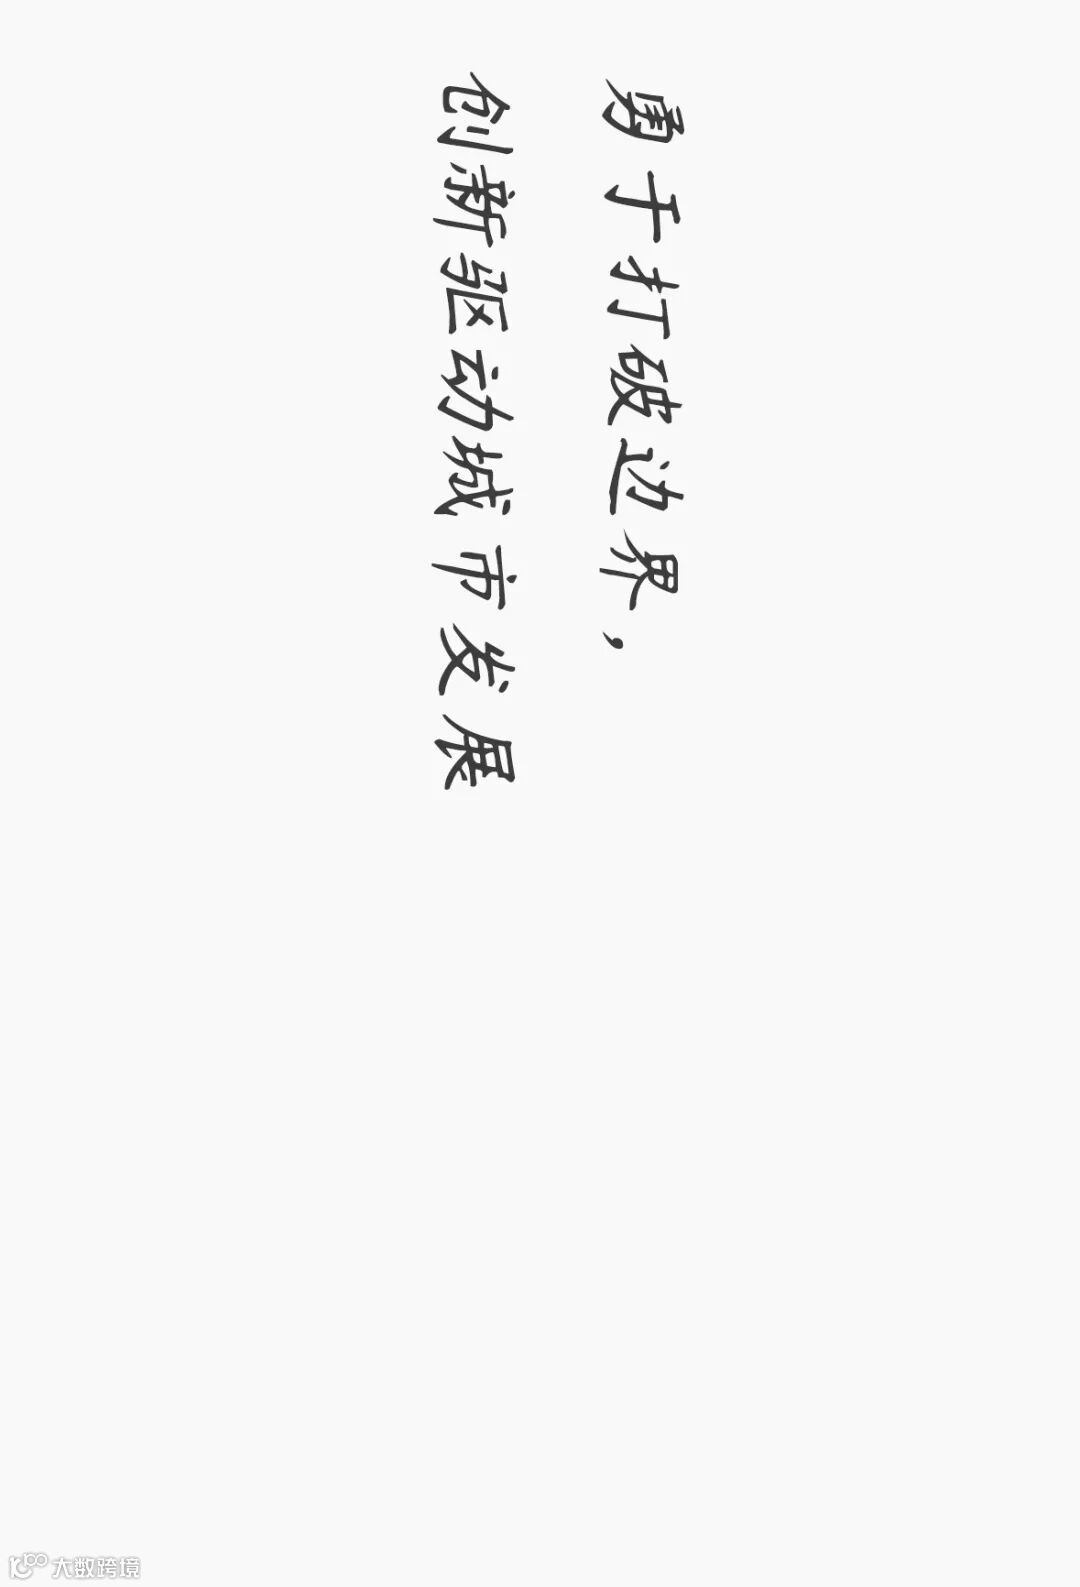 勇于打破边界，
创新驱动城市发展
大数跨境